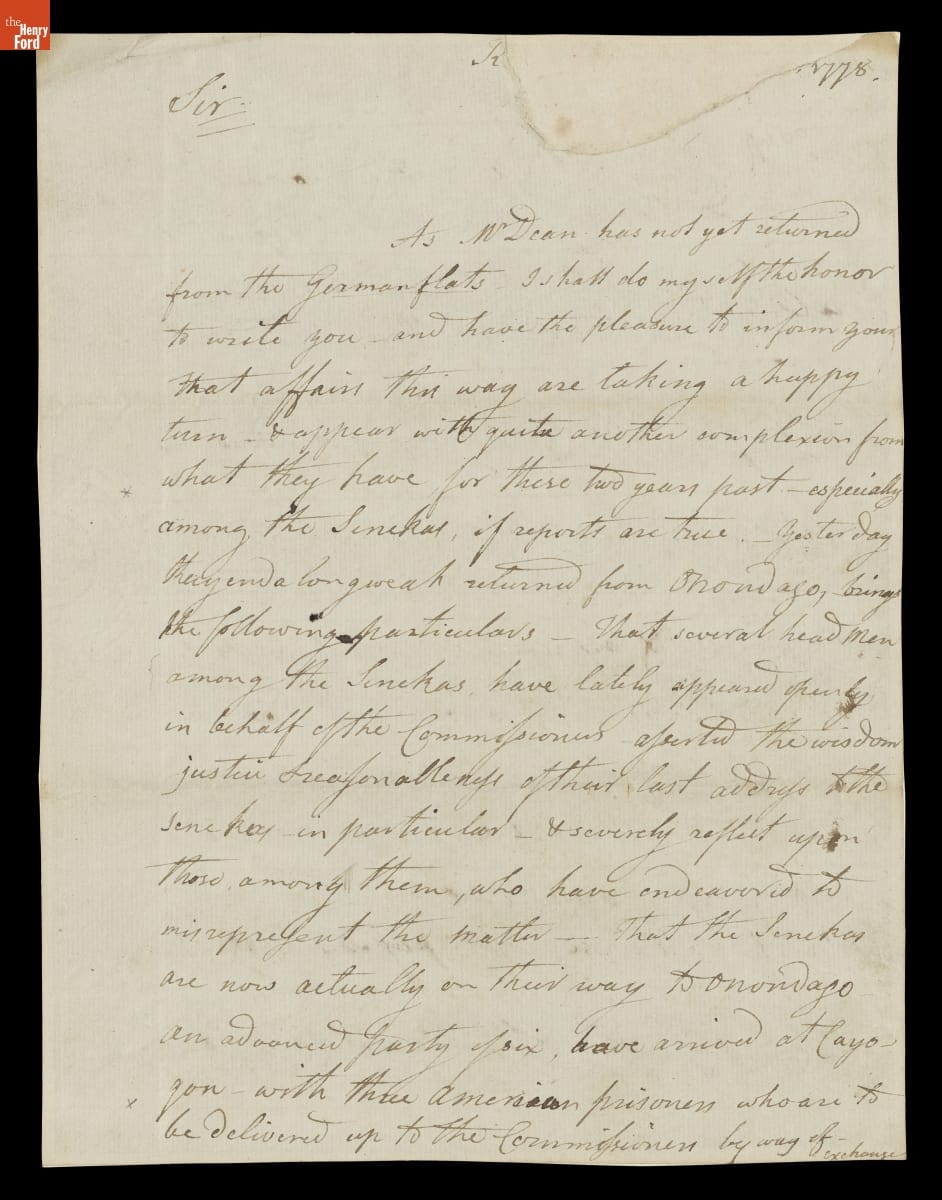 the
Henry
Ford
1778.
Sir
As Mr Dean has not yet returned
from the German flats - I shall do myself the honor
to write you - and have the pleasure to inform you
that affairs this way are taking a happy
turn - & appear with quite another complexion from
what they have for these two years past - especially
among the Senekas, if reports are true. - Yesterday
returned from Onondago, brings
the following particulars - That several head Men
among the Senekas, have lately appeared openly
in behalf of the Commissioners - aserted the wisdom
justice & reasonableness of their last address to the
Senekas in particular - & severely reflect upon
those among them, who have endeavored to
misrepresent the matter - That the Senekas
are now actually on their way to Onondago -
an advanced party of six, have arrived at Cayo-
gou - with three American prisoners who are to
be delivered up to the Commissioners by way of -
exchange